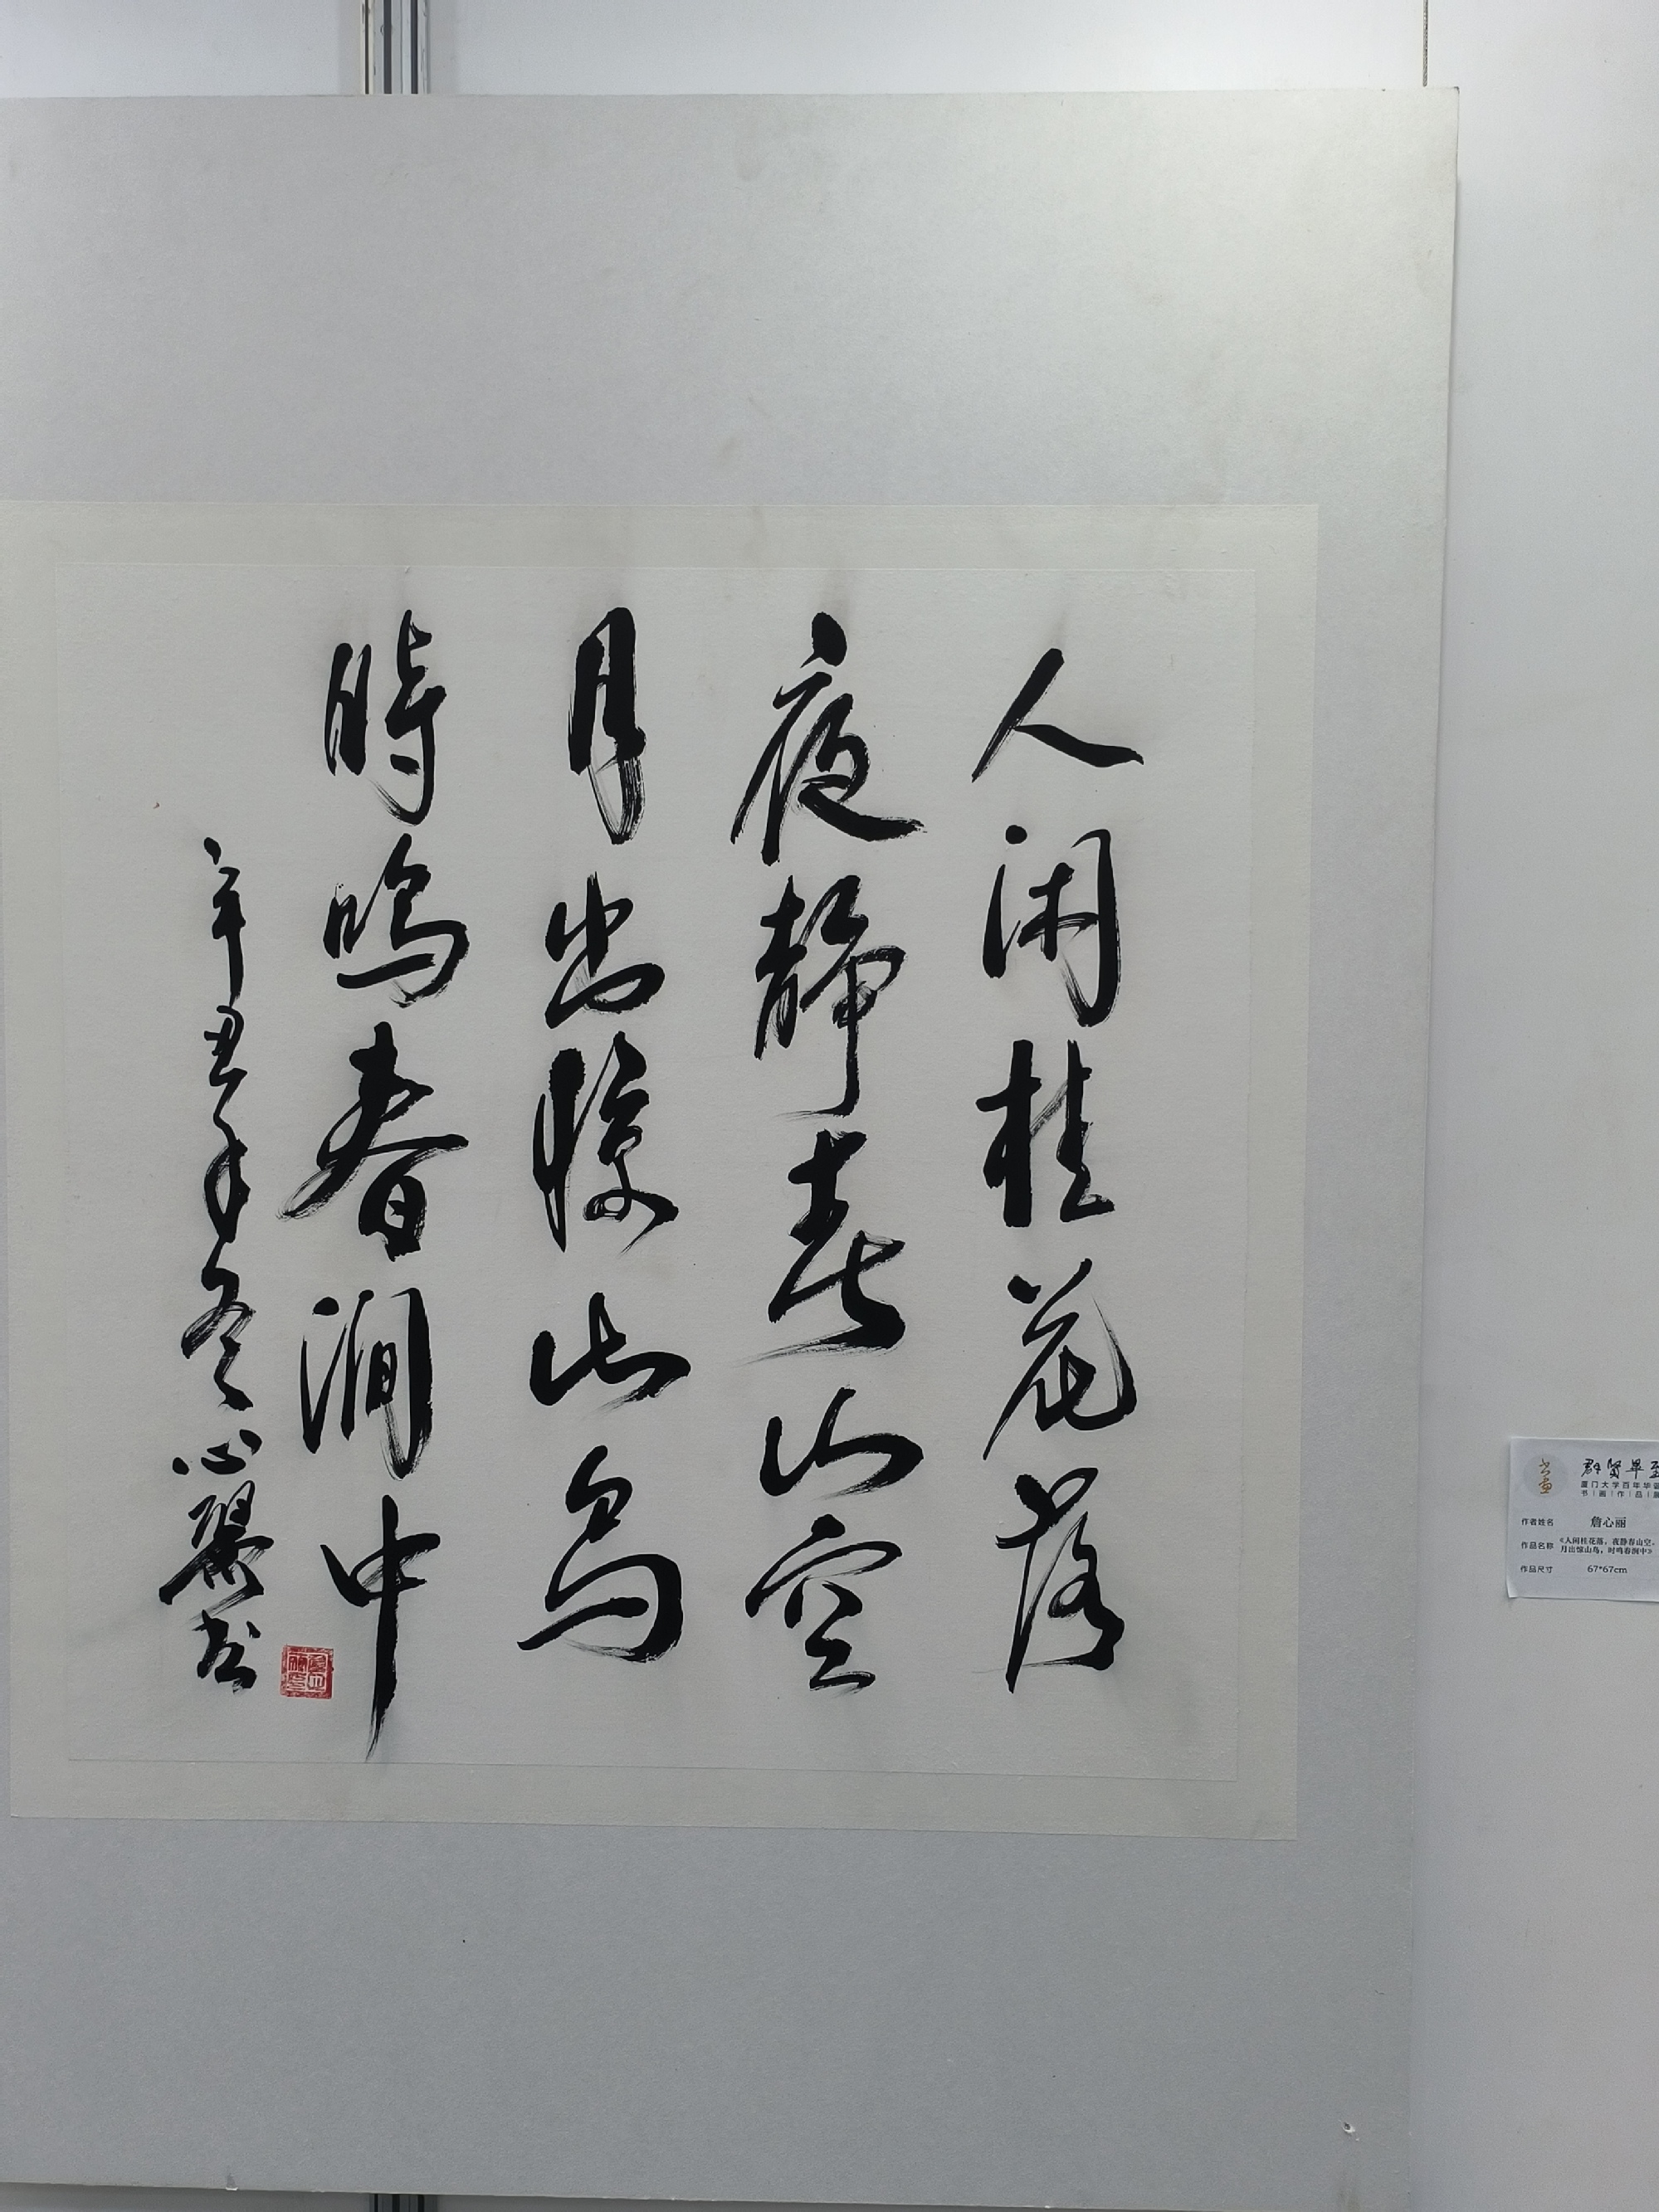 人闲桂花落
夜静春山空
月出惊山鸟
時鳴春澗中
辛丑年冬心丽书
群贤毕至
厦门大学百年华诞
书画作品展
作者姓名 詹心丽
作品名称 《人闲桂花落，夜静春山空，
月出惊山鸟，时鸣春涧中》
作品尺寸 67*67cm